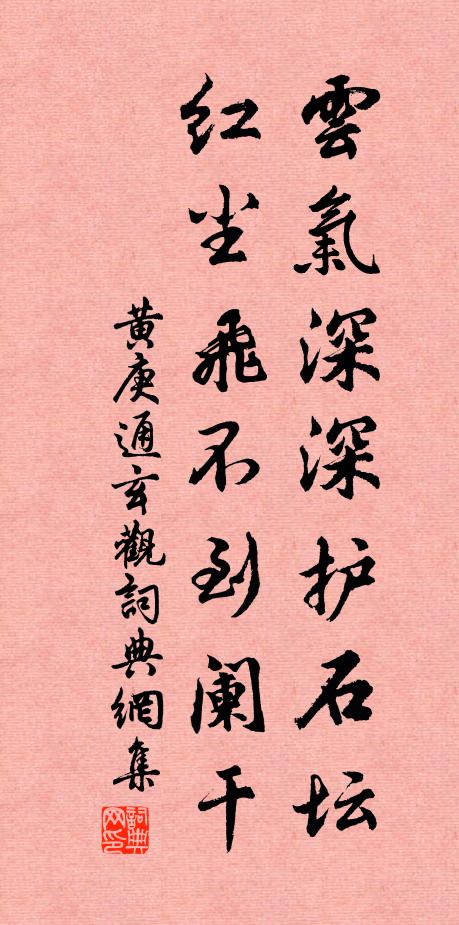 雲氣深深护石坛
红尘飛不到阑干
黄庚通玄觀詞典網集
詞典网印